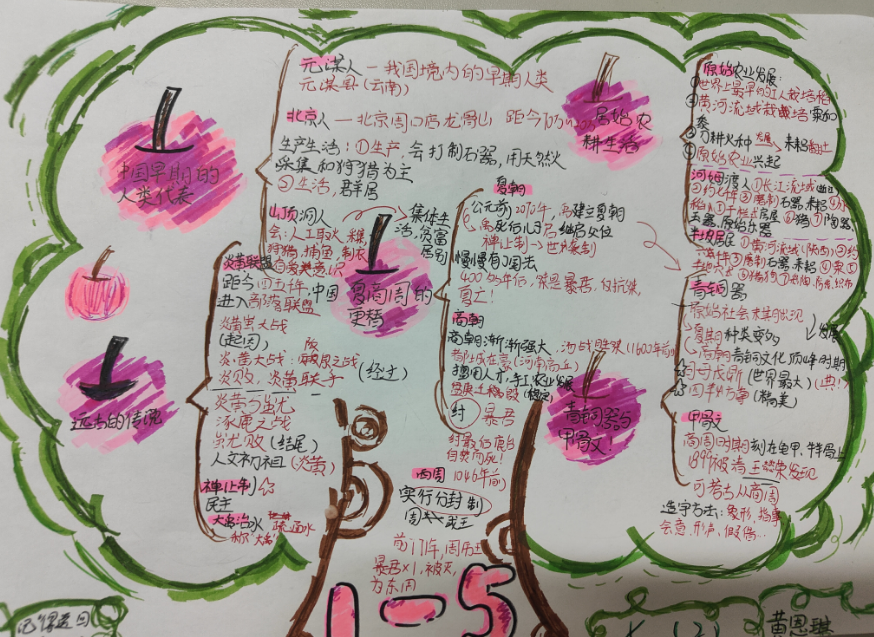 中国早期的
人类代表
元谋人—我国境内的早期人类
元谋县(云南)
北京人—北京周口店龙骨山 距今
生产生活:①生产,会打制石器,用天然火
采集和狩猎为主
②生活,群居
山顶洞人
会:人工取火,采集
狩猎,捕鱼,制衣
集体生
活,贫富
居别
炎黄联盟
距今四五千年,中国
进入部落联盟
炎蚩尤大战
(起因)
炎黄大战:阪泉之战
炎败,炎黄联手(经过)
炎黄与蚩尤
涿鹿之战
蚩尤败(结尾)
人文初祖(炎黄)
禅让制
民主
大禹治水
疏通水
称"大禹"
远古的传说
夏商周的
更替
夏朝
公元前2070年,禹建立夏朝
禹死后儿子启继承父位
禅让制→世袭制
慢慢有了国家
400多年后,桀是暴君,
夏亡!
商朝
商朝渐渐强大,汤战胜桀(1600年前)
盘庚迁都殷(稳定)
纣 暴君
自焚而死!
西周 1046年前
实行分封制
前771年,周历王
暴君×1,被灭,
为东周
原始农
耕生活
原始农业发展:
①世界上最早的人栽培稻
②黄河流域栽培粟和
黍
③刀耕火种
④原始农业兴起
河姆渡人①长江流域
半坡居民①黄河流域(陕西)
青铜器
原始社会末期出现
夏期种类变多
发展
商朝青铜文化顶峰时期
司母戊鼎(世界最大)
四羊方尊(精美)
青铜器与
甲骨文!
甲骨文
商周时期刻在龟甲、牛羊骨上
1899被清王懿荣发现
可考古从商周
造字方法:象形,指事
会意,形声,假借...
1-5
黄恩琳